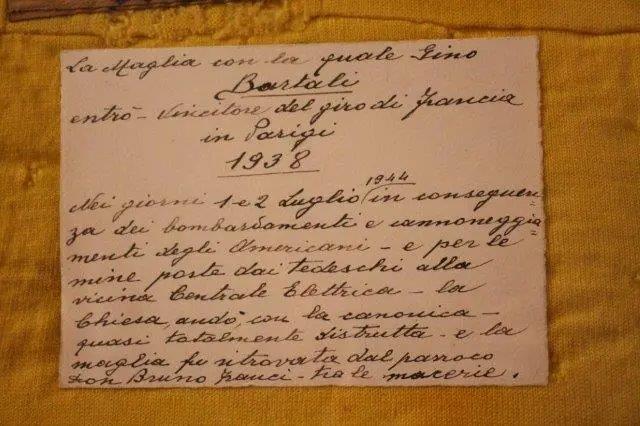 La Maglia con la quale Gino
Bartali
entrò - Vincitore del giro di Francia
in Parigi
1938
Nei giorni 1 e 2 Luglio (1944 in conseguen=
za dei bombardamenti e cannoneggia=
menti degli Americani - e per le
mine poste dai tedeschi alla
vicina Centrale Elettrica - la
Chiesa, andò, con la canonica -
quasi totalmente distrutta - e la
maglia fu ritrovata dal parroco
Don Bruno Franci - tra le macerie.